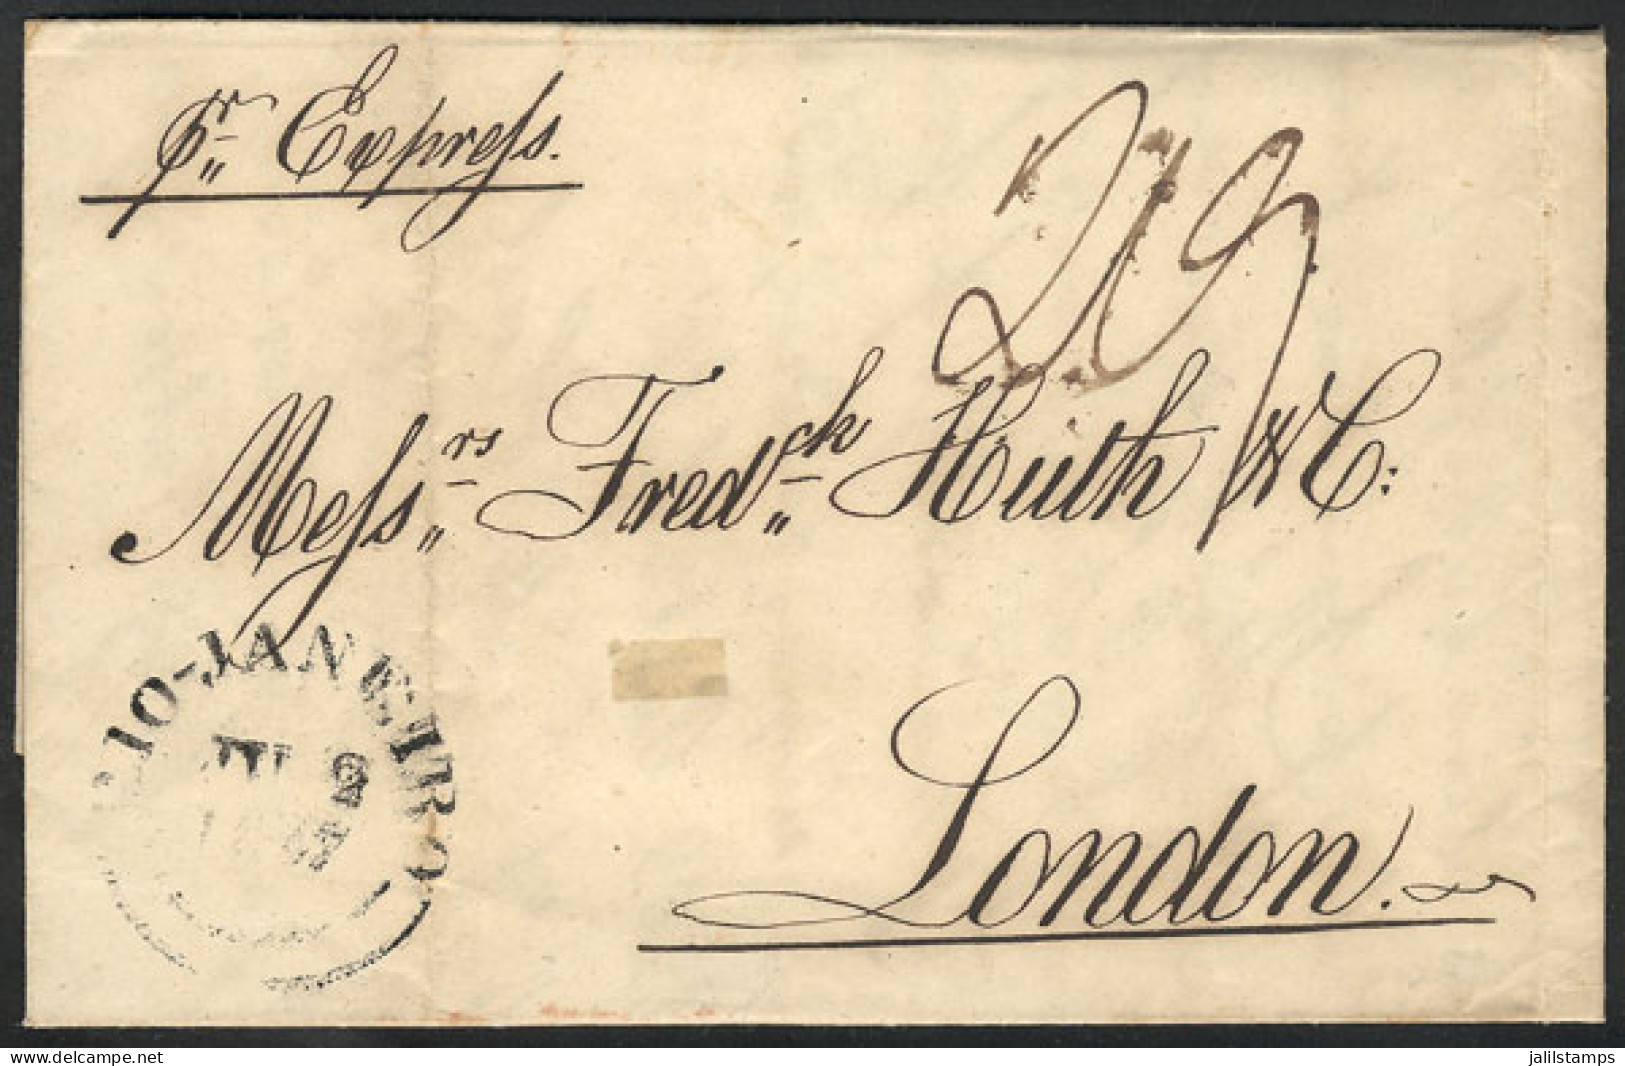 pr Express.
2/9
Messrs Fredck Huth & C:
RIO-JANEIRO
London.
jalilstamps